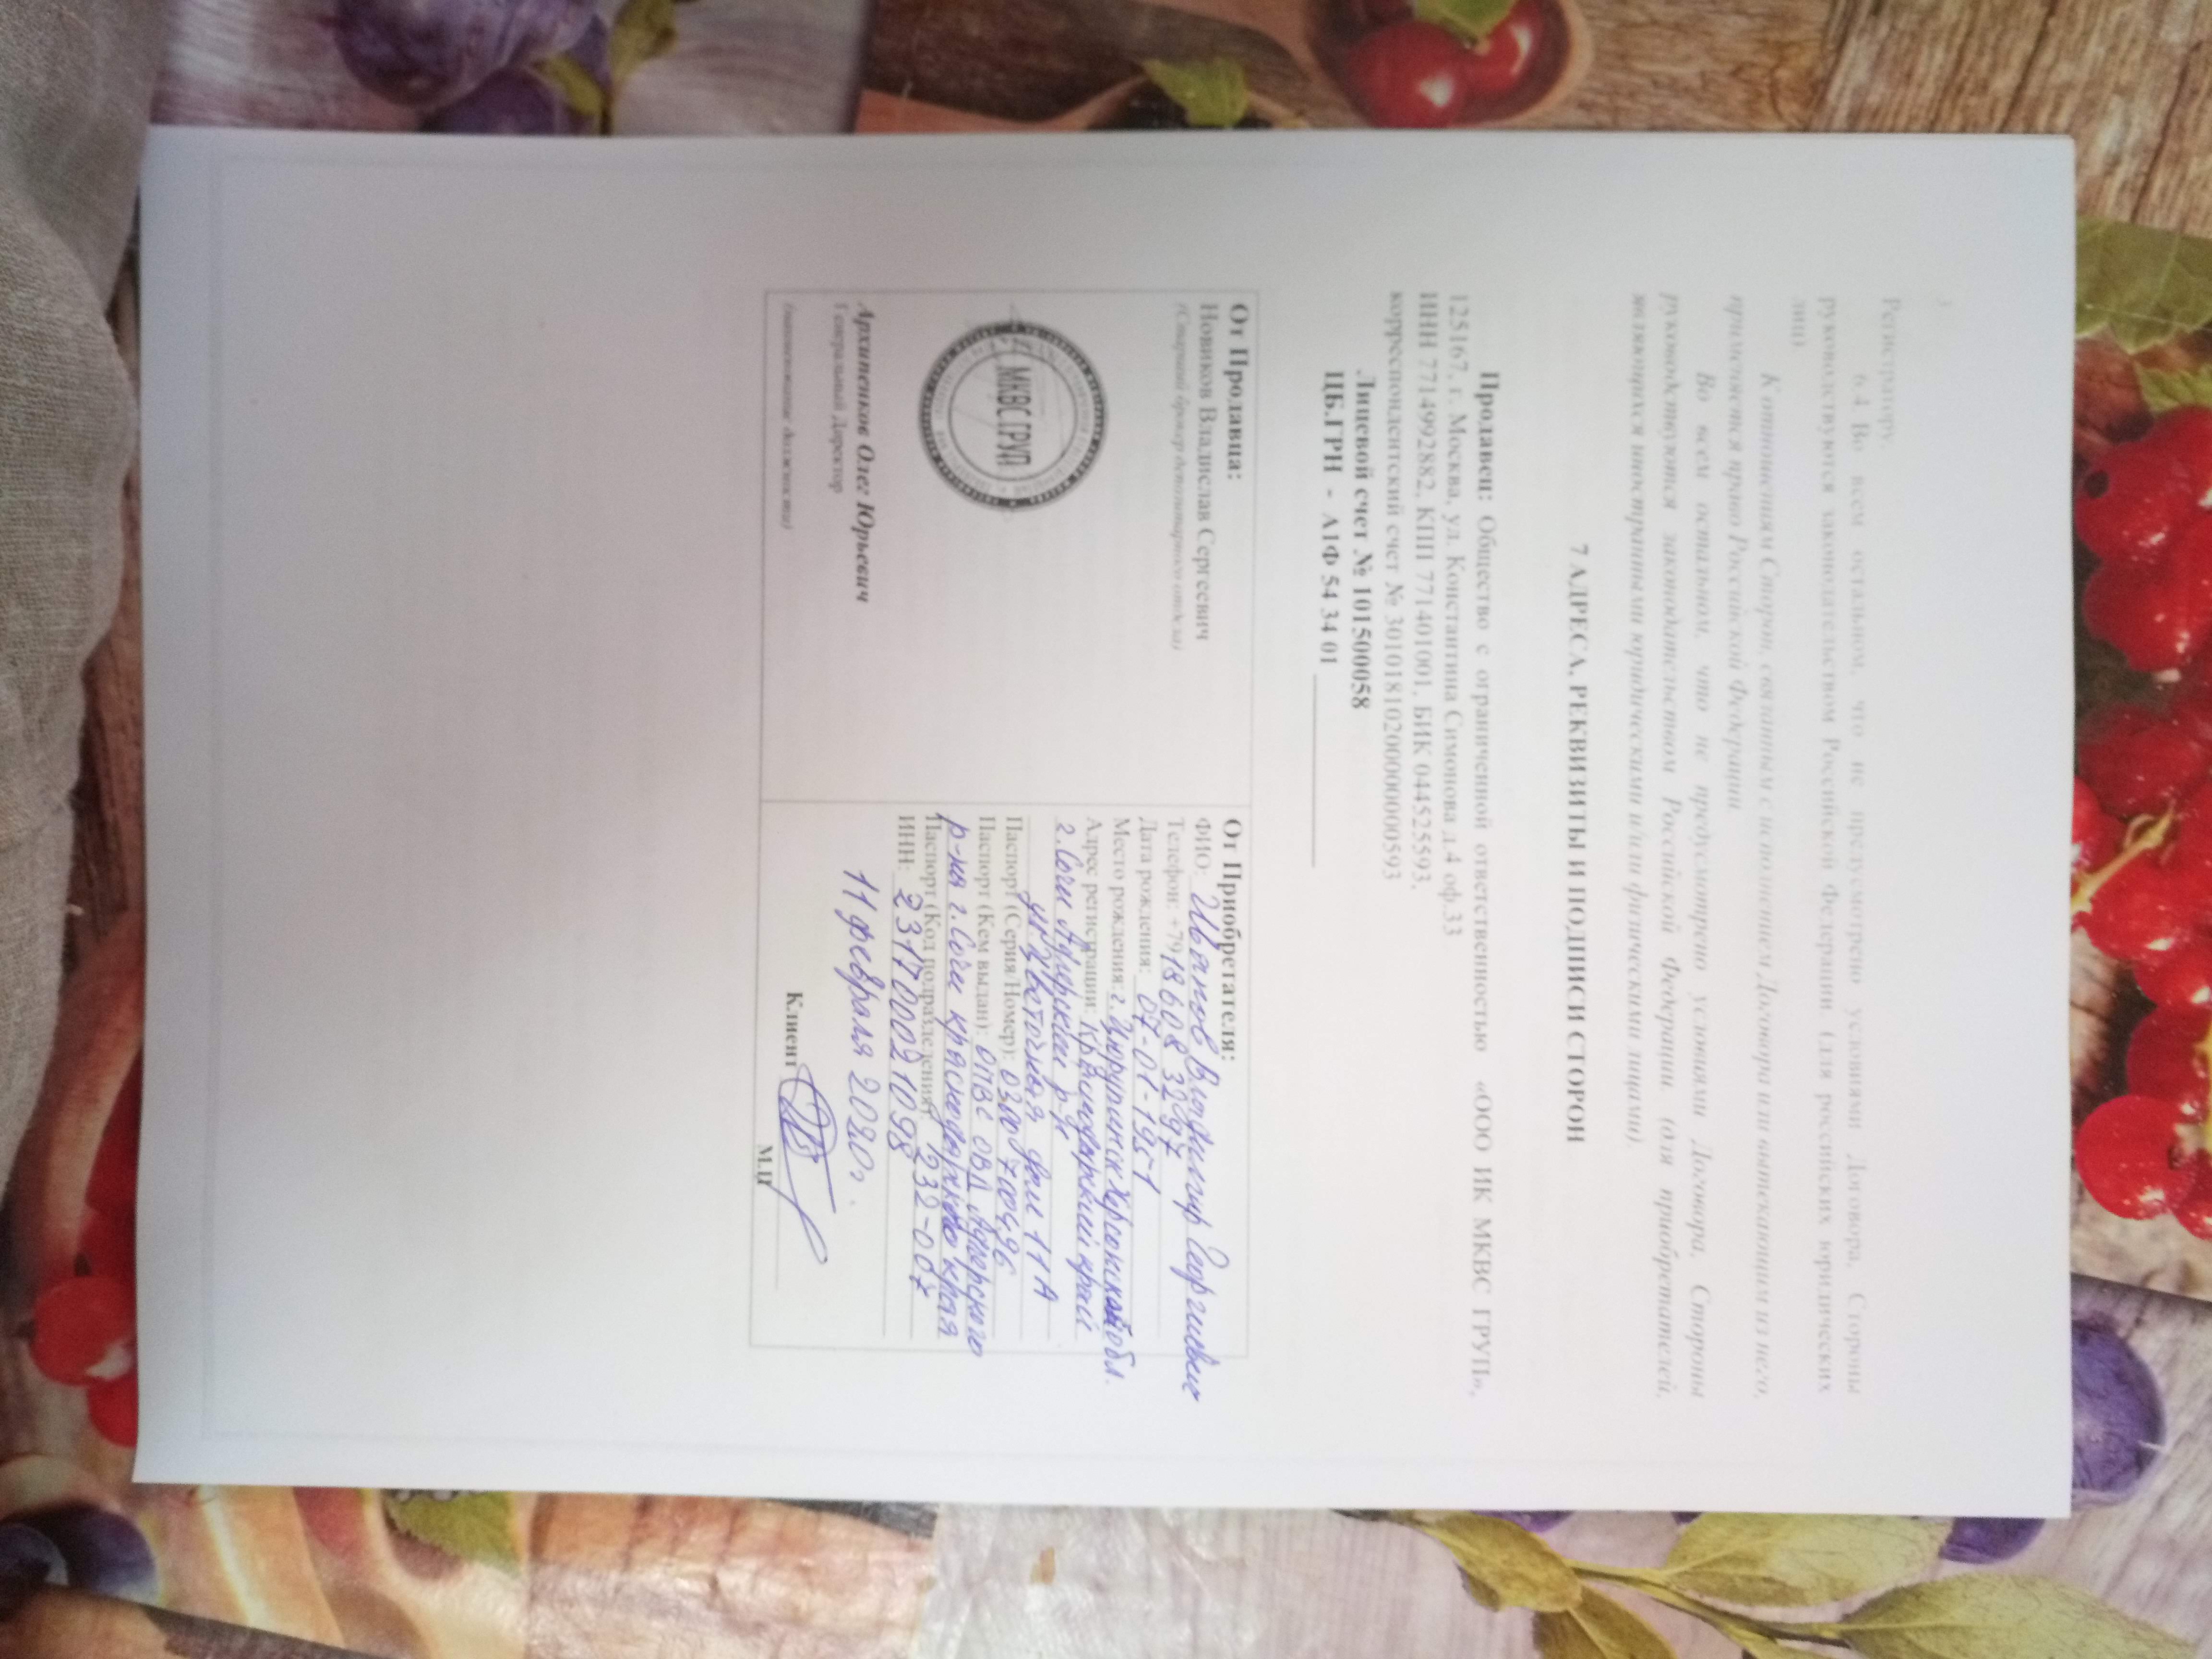 Регистратору.
6.4 Во всем остальном, что не предусмотрено условиями Договора, Стороны
руководствуются законодательством Российской Федерации (для российских юридических
лиц)
К отношениям Сторон, связанным с исполнением Договора или вытекающим из него,
применяется право Российской Федерации.
Во всем остальном, что не предусмотрено условиями Договора, Стороны
руководствуются законодательством Российской Федерации (для приобретателей,
являющихся иностранными юридическими и/или физическими лицами).
7 АДРЕСА, РЕКВИЗИТЫ И ПОДПИСИ СТОРОН
Продавец: Общество с ограниченной ответственностью «ООО ИК МКВС ГРУП»,
125167, г. Москва, ул. Константина Симонова д.4 оф.33
ИНН 7714992882, КПП 771401001, БИК 044525593,
корреспондентский счет № 30101810200000000593
Лицевой счет № 101500058
ЦБ.ГРН - А1Ф 54 34 01
От Продавца:
Новиков Владислав Сергеевич
(Старший брокер депозитарного отдела)
МКВС ГРУП
Архипенков Олег Юрьевич
Генеральный Директор
(наименование должности)
От Приобретателя:
ФИО: Иванов Владимир Георгиевич
Телефон: +7918 608 3297
Дата рождения: 07-01-1951
Место рождения: г. Цюрупинск Херсонской обл.
Адрес регистрации: Краснодарский край
г. Сочи Адлерский р-н
ул Цветочная дом 11 А
Паспорт (Серия/Номер): 0300 700496
Паспорт (Кем выдан): ОПВС ОВД Адлерского
р-на г. Сочи Краснодарского края
Паспорт (Код подразделения): 232-007
ИНН: 231700021098
11 февраля 2020 г.
Клиент
М.П